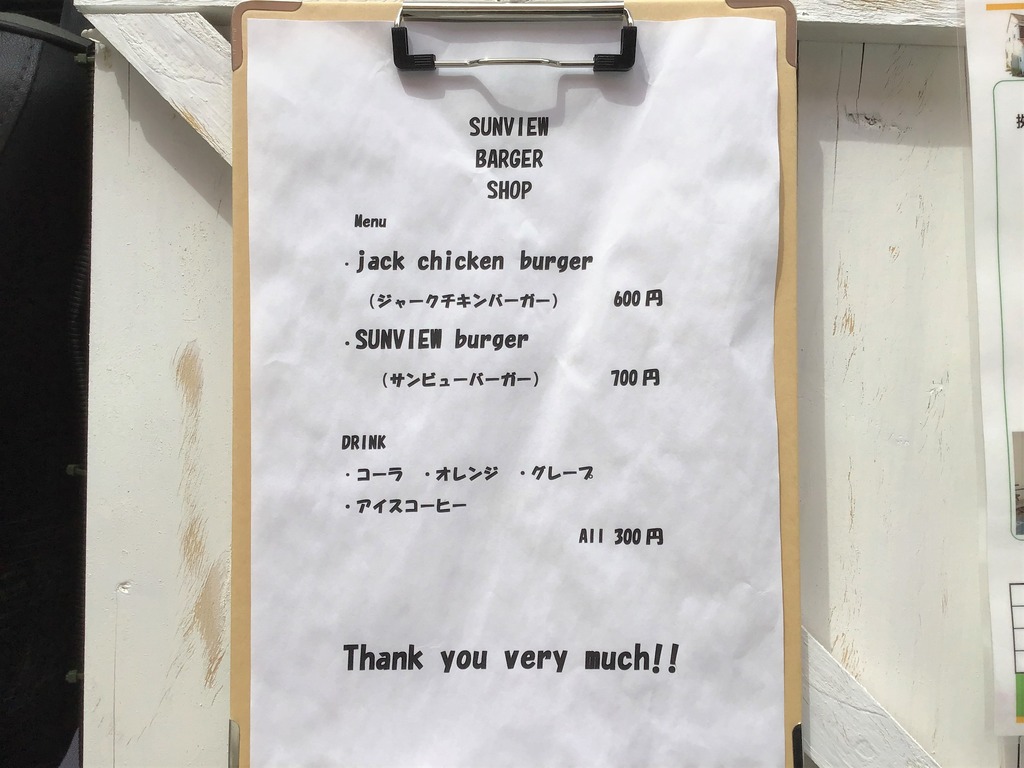 SUNVIEW
BARGER
SHOP
Menu
・jack chicken burger
(ジャークチキンバーガー) 600円
・SUNVIEW burger
(サンビューバーガー) 700円
DRINK
・コーラ ・オレンジ ・グレープ
・アイスコーヒー
All 300円
Thank you very much!!